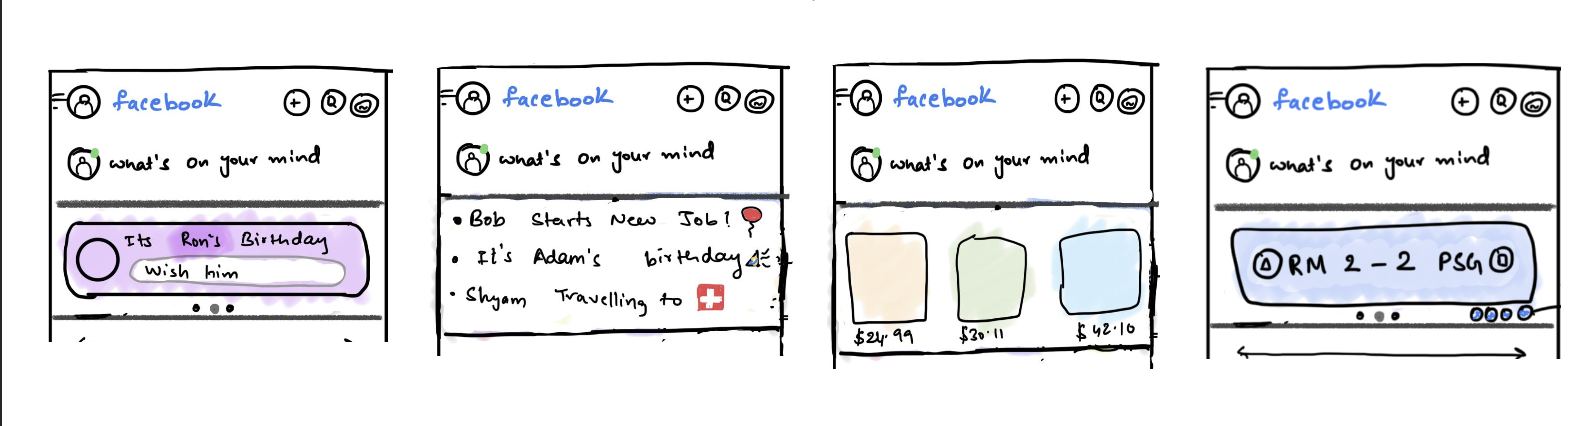 facebook
what's on your mind
Its Ron's Birthday
Wish him
facebook
what's on your mind
• Bob Starts New Job!
• It's Adam's birthday
• Shyam Travelling to
facebook
what's on your mind
$24.99
$30.11
$42.10
facebook
what's on your mind
RM 2 - 2 PSG